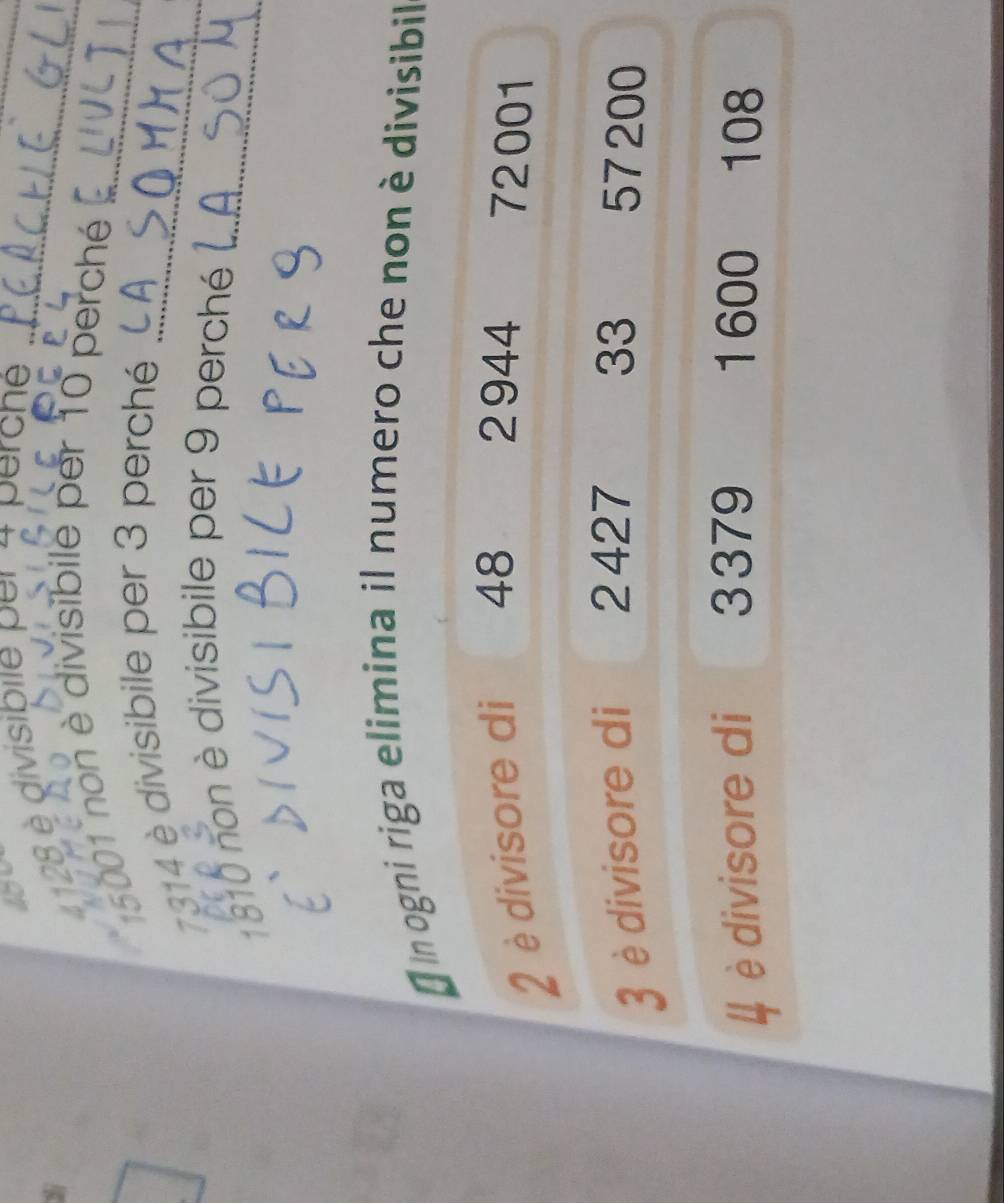 divisibile per 4 perché PERCHÉ GLI
4128 è DIVISIBILE PER 4
15001 non è divisibile per 10 perché
7314 è divisibile per 3 perché LA SOMMA
PER 3
1810 non è divisibile per 9 perché LA SOM
È DIVISIBILE PER 9
In ogni riga elimina il numero che non è divisibil
2 è divisore di 48 2944 72001
3 è divisore di 2427 33 57200
4 è divisore di 3379 1600 108